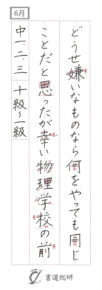 6月
どうせ嫌いなものなら何をやっても同じ
ことだと思ったが幸い物理学校の前
中一・二・三 十級〜一級
書道総研